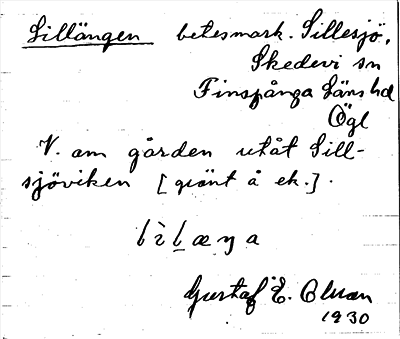 Sillängen betesmark. Sillesjö,
Skedevi sn
Finspånga Läns hd
Ögl
V. om gården utåt Sill-
sjöviken [gränt å ek.].
Gustaf E. Olson
1930